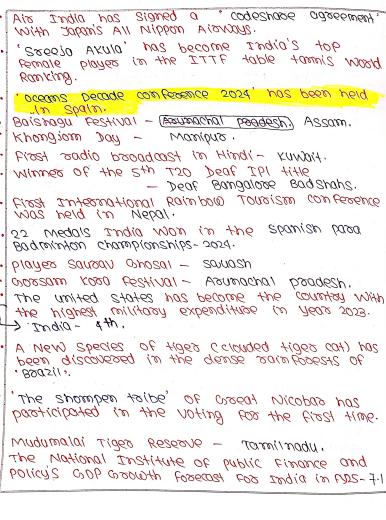 Air India has signed a 'codeshare agreement'
with Japan's All Nippon Airways.
'Sreeja Akula' has become India's top
female player in the ITTF table tannis World
Ranking.
'Oceans Decade conference 2024' has been held
in Spain.
Baishagu Festival - Arunachal pradesh. Assam.
Khongjom Day - Manipur.
First radio broadcast in Hindi - Kuwait.
Winner of the 5th T20 Deaf IPL title
- Deaf Bangalore Badshahs.
First International Rainbow Tourism conference
was held in Nepal.
22 Medals India won in the spanish para
Badminton championships - 2024.
player Saurav Ghosal - squash
Gorsam Kora Festival - Arunachal pradesh.
The united states has become the country with
the highest military expenditure in year 2023.
India - 4th.
A New species of tiger (clouded tiger cat) has
been discovered in the dense rainforests of
'Brazil'.
'The shompen tribe' of Great Nicobar has
participated in the voting for the first time.
Mudumalai Tiger Reserve - Tamilnadu.
The National Institute of public Finance and
policy's GDP Growth forecast for India in - 7.1